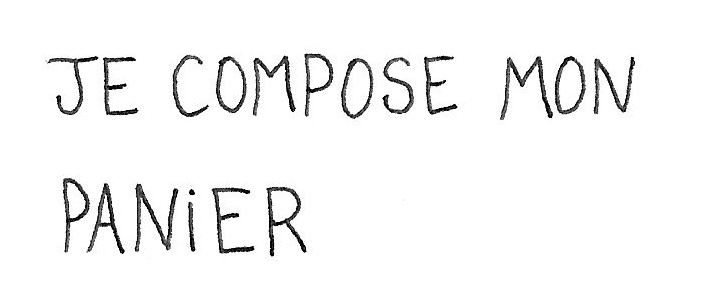 JE COMPOSE MON
PANiER